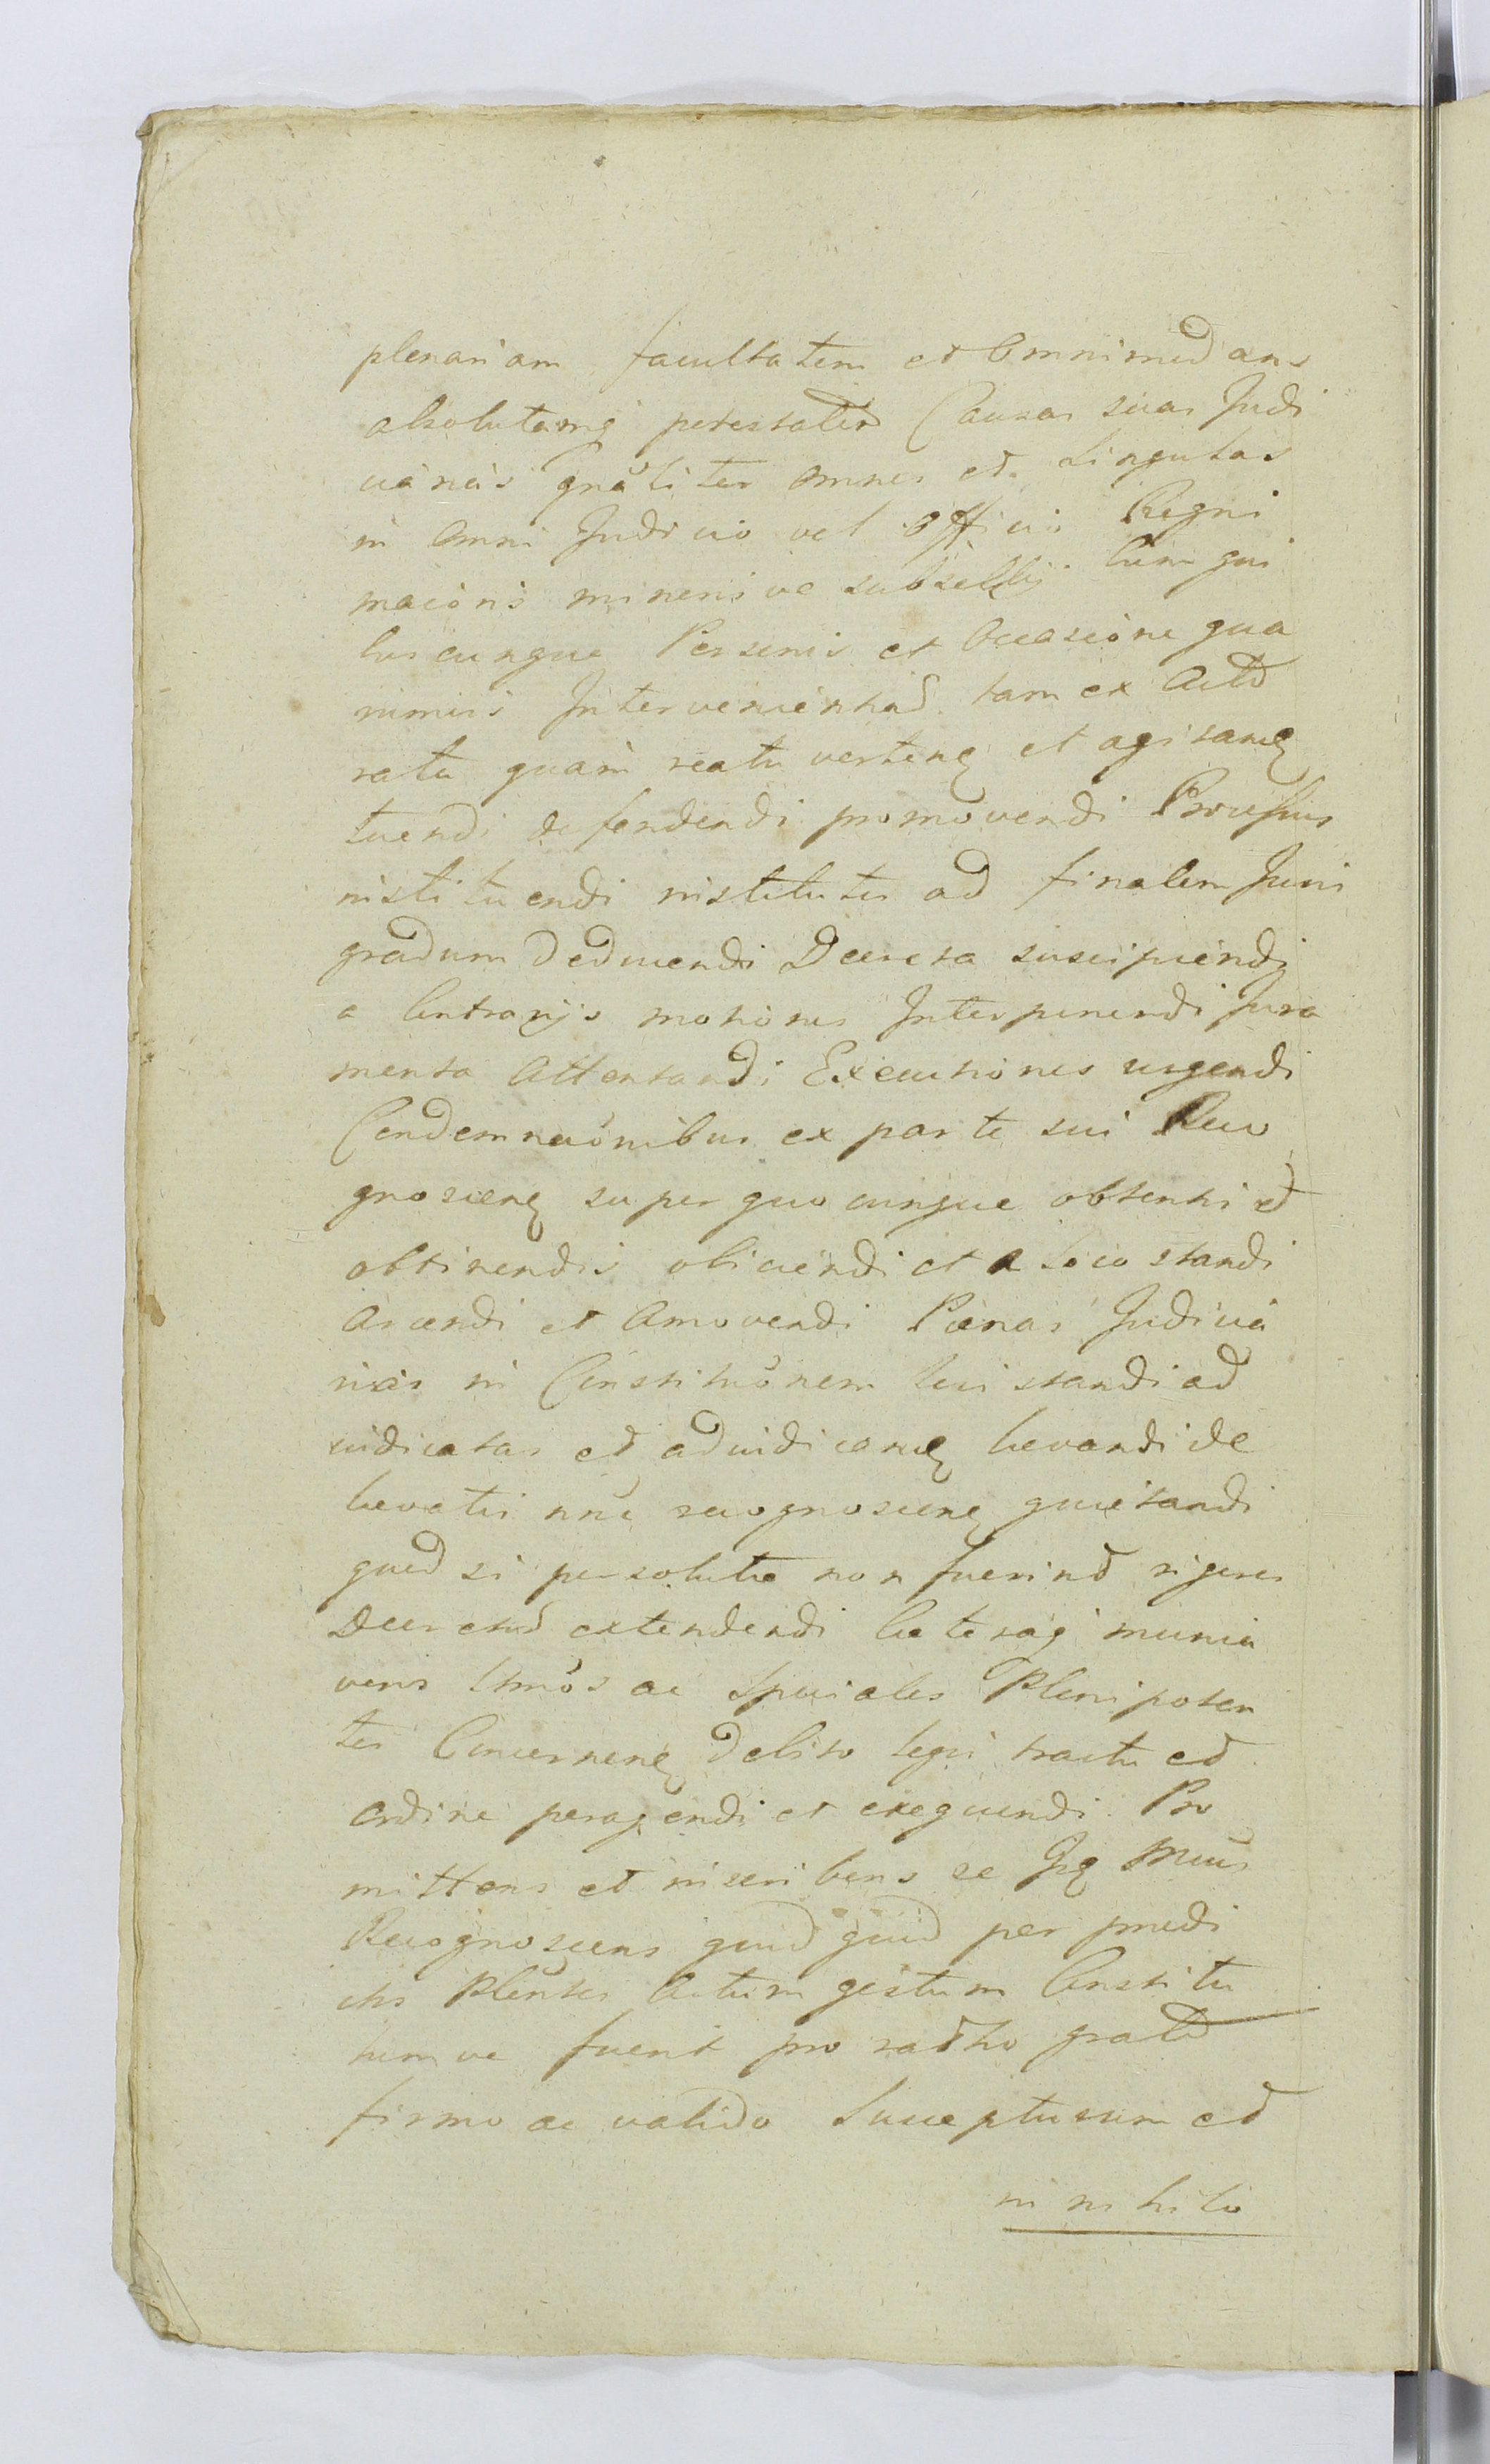 plenariam facultatem et Omnimodam
absolutamq potestatem Causas suas Judi
ciarias gnãliter omnes et singulas
in omni Judicio vel Officio Regni
maioris minorisve subsellij Cum qui
buscunque Personis et Occasione qua
rumvis Intervenientiũ tam ex Acto
ratu quam reatu verteñ et agitanđ
tuendi defendendi promovendi Processus
instituendi institutos ad finalem Juris
gradum Deducendi Decreta suscipiendi
a Contrarijs motiones Interponendi Jura
menta Attentandi Executiones urgendi
Condemnaõnibus ex parte sui Reco
gnosceñ super quocunque obtentis et
obtinendis obiiciendi et a loco standi
Arcendi et Amovendi Poenas Judicia
rias in Constituõnem loci standi ad
iudicatas et adiudicanđ levandi de
levatis nñe recognosceñ quietandi
quod si persolutae non fuerint rigores
Decretorũ extendendi Caeteraq munia
veros ltmõs ac speciales Plenipoten
tes Concerneñ debito legis tractu et
ordine peragendi et exequendi Pro
mittens et inscribens se Iđ Mñcus
Recognoscens quidquid per praedi
ctos Plẽntes Actum gestum Constitu
tumve fuerit pro ratho grato
firmo ac valido Suscepturum et
in nihilo